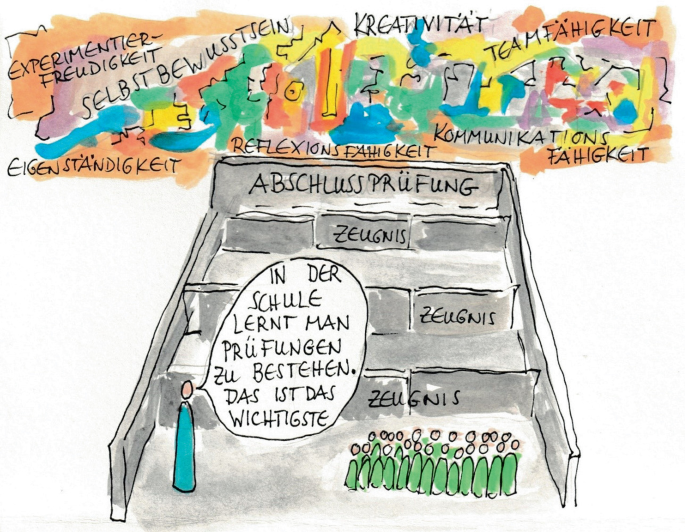 KREATIVITÄT
EXPERIMENTIER-
FREUDIGKEIT
SELBSTBEWUSSTSEIN
TEAMFÄHIGKEIT
EIGENSTÄNDIGKEIT
REFLEXIONSFÄHIGKEIT
KOMMUNIKATIONS
FÄHIGKEIT
ABSCHLUSSPRÜFUNG
ZEUGNIS
IN DER
SCHULE
LERNT MAN
PRÜFUNGEN
ZU BESTEHEN.
DAS IST DAS
WICHTIGSTE
ZEUGNIS
ZEUGNIS